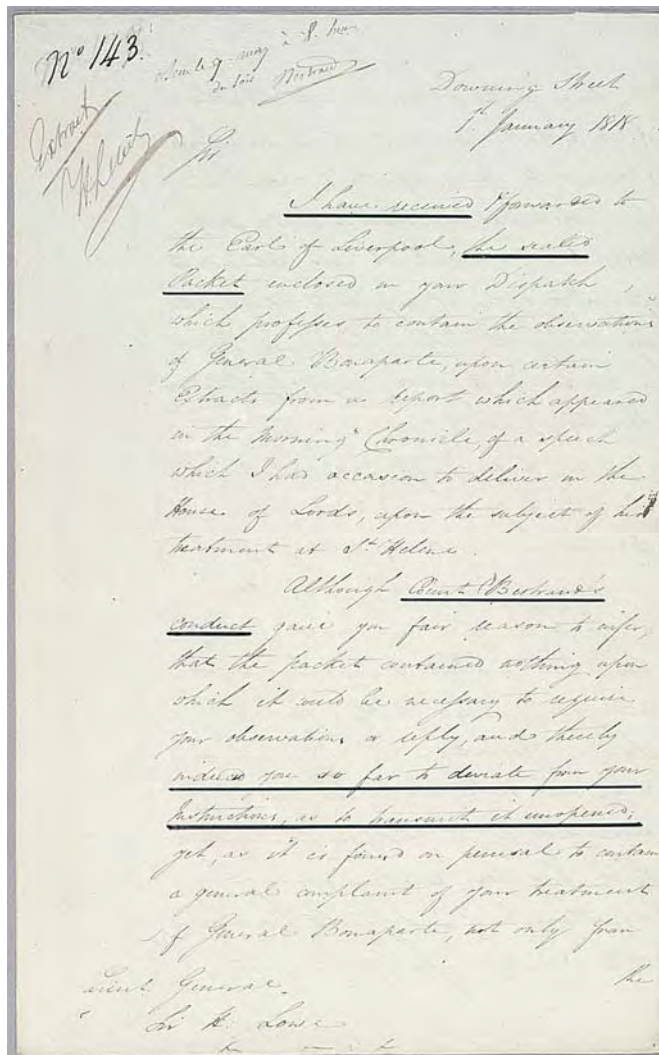 No 143.
à 8. heu
du soir Bertrand
Extract
Downing Street
1st January 1818
Sir
I have received & forwarded to
the Earl of Liverpool, the sealed
Packet enclosed in your Dispatch,
which professes to contain the observations
of General Bonaparte, upon certain
Extracts from a report which appeared
in the Morning Chronicle, of a speech
which I had occasion to deliver in the
House of Lords, upon the subject of his
treatment at St Helena.
Although Count Bertrand's
conduct gave you fair reason to infer,
that the packet contained nothing upon
which it could be necessary to require
your observations or reply, and thereby
induced you so far to deviate from your
Instructions, as to transmit it unopened;
yet, as it is found on perusal to contain
a general complaint of your treatment
of General Bonaparte, not only from
the
Lieut. General.
Sir H. Lowe